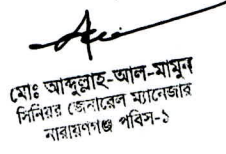 মোঃ আব্দুল্লাহ-আল-মামুন
সিনিয়র জেনারেল ম্যানেজার
নারায়ণগঞ্জ পবিস-১